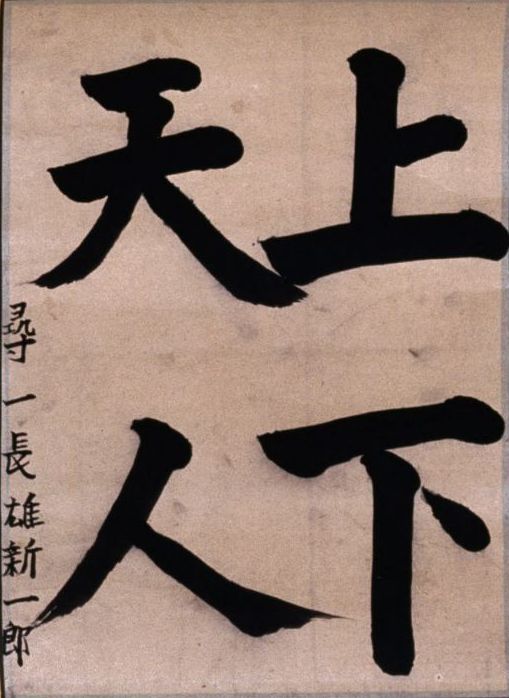 上下
天人
尋一長雄新一郎